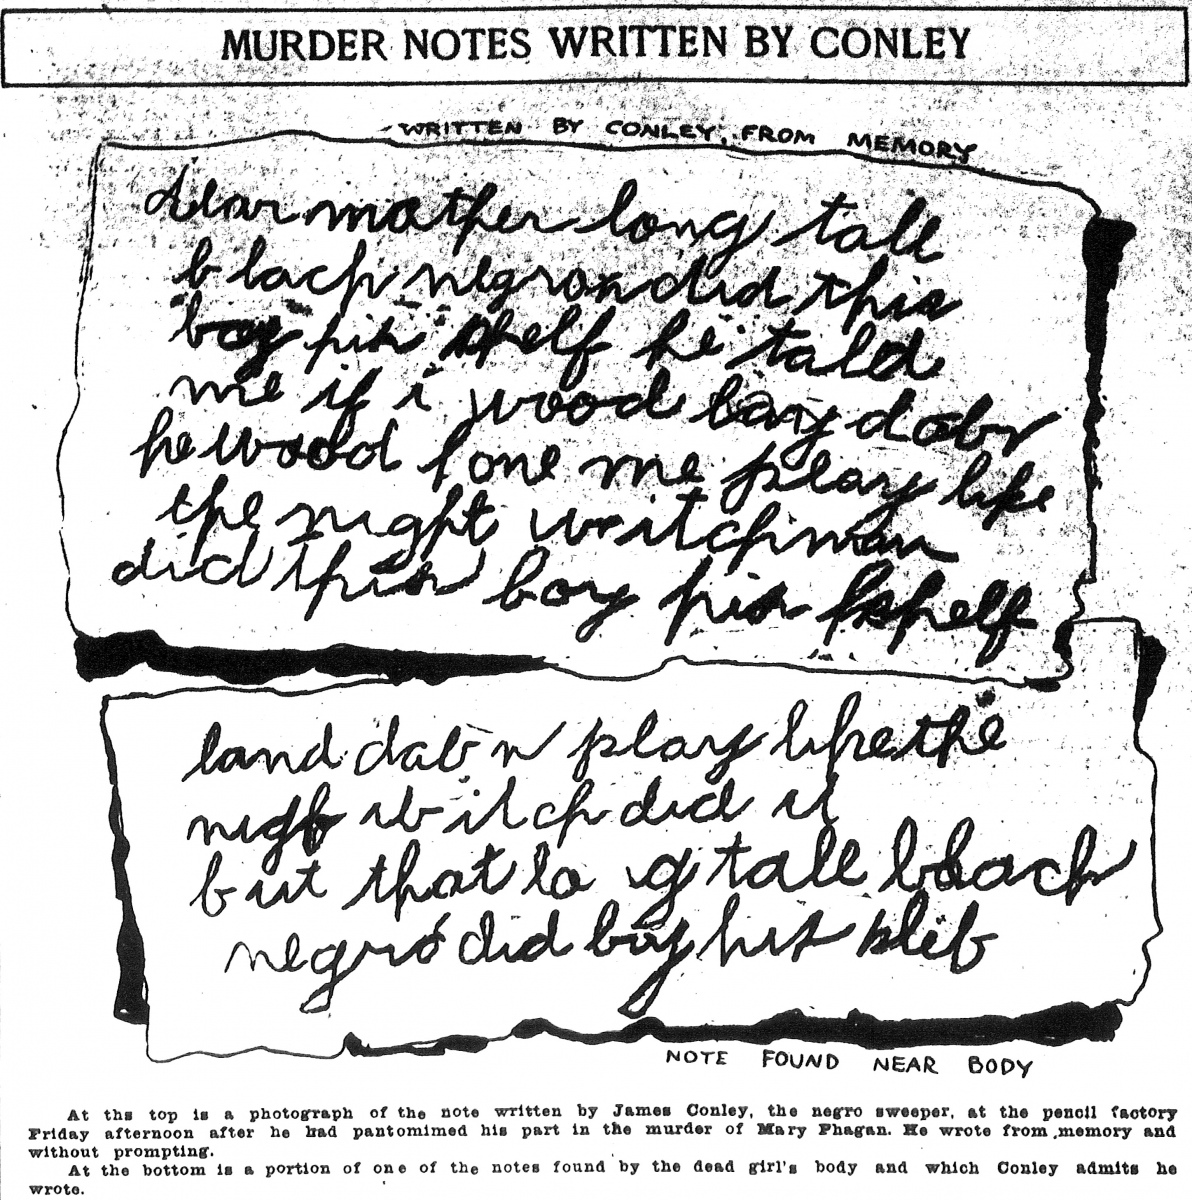 MURDER NOTES WRITTEN BY CONLEY
WRITTEN BY CONLEY, FROM MEMORY
dear mother long tall
black negron did this
boy his shelf he tald
me if i wood lay dabr
he wood lone me play like
the night weitchman
did this boy his shelf
land dab n play like the
nigh witch did it
but that lo g tall blaack
negro did boy his sleb
NOTE FOUND NEAR BODY
At ths top is a photograph of the note written by James Conley, the negro sweeper, at the pencil factory
Friday afternoon after he had pantomimed his part in the murder of Mary Phagan. He wrote from memory and
without prompting.
At the bottom is a portion of one of the notes found by the dead girl's body and which Conley admits he
wrote.